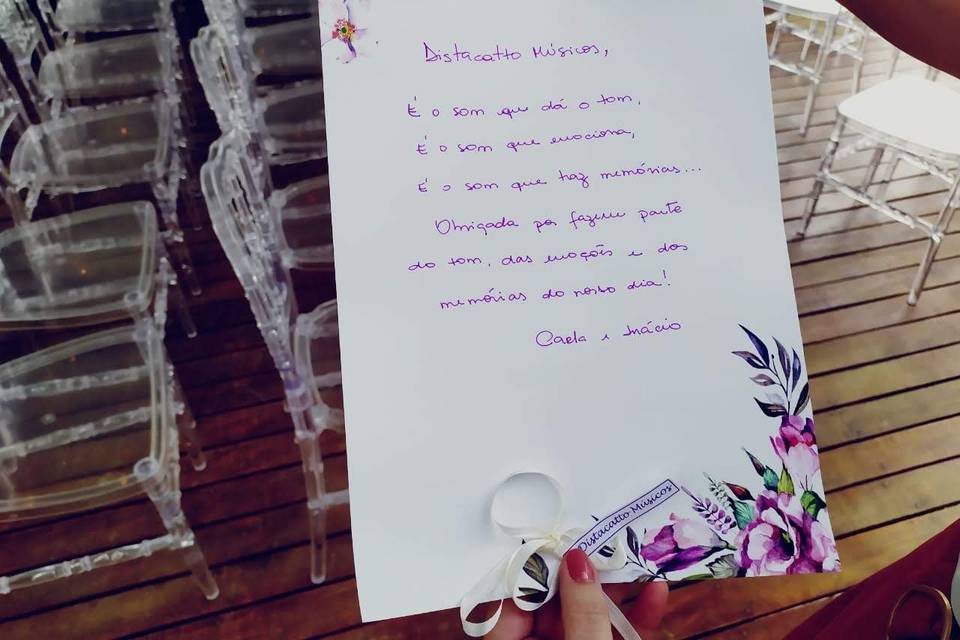 Distacatto Músicos,
É o som que dá o tom,
É o som que emociona,
É o som que traz memórias...
Obrigada por fazerem parte
do tom, das emoções e das
memórias do nosso dia!
Carla e Inácio
Distacatto Músicos